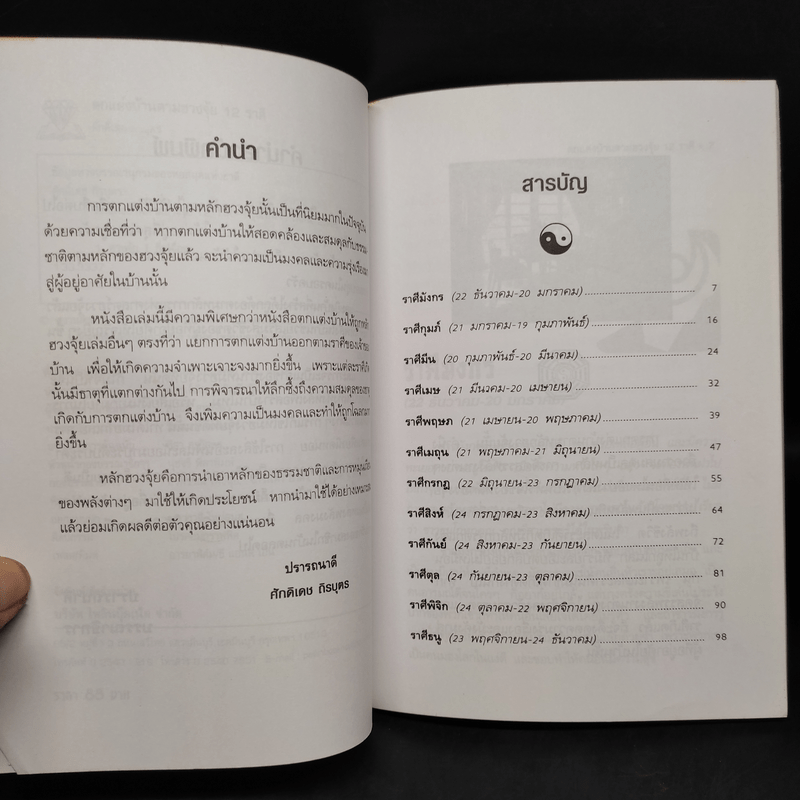 คำนำ
การตกแต่งบ้านตามหลักฮวงจุ้ยนั้นเป็นที่นิยมมากในปัจจุบัน
ด้วยความเชื่อที่ว่า หากตกแต่งบ้านให้สอดคล้องและสมดุลกับธรรม
ชาติตามหลักของฮวงจุ้ยแล้ว จะนำความเป็นมงคลและความรุ่งเรืองมา
สู่ผู้อยู่อาศัยในบ้านนั้น
หนังสือเล่มนี้มีความพิเศษกว่าหนังสือตกแต่งบ้านให้ถูก
ฮวงจุ้ยเล่มอื่นๆ ตรงที่ว่า แยกการตกแต่งบ้านออกตามราศีของเจ้าของ
บ้าน เพื่อให้เกิดความจำเพาะเจาะจงมากยิ่งขึ้น เพราะแต่ละราศี
นั้นมีธาตุที่แตกต่างกันไป การพิจารณาให้ลึกซึ้งถึงความสมดุลของ
เกิดกับการตกแต่งบ้าน จึงเพิ่มความเป็นมงคลและทำให้ถูกโฉลก
ยิ่งขึ้น
หลักฮวงจุ้ยคือการนำเอาหลักของธรรมชาติและการหมุน
ของพลังต่างๆ มาใช้ให้เกิดประโยชน์ หากนำมาใช้ได้อย่าง
แล้วย่อมเกิดผลดีต่อตัวคุณอย่างแน่นอน
ปรารถนาดี
ศักดิเดช ถิรบุตร
สารบัญ
ราศีมังกร (22 ธันวาคม-20 มกราคม) 7
ราศีกุมภ์ (21 มกราคม-19 กุมภาพันธ์) 16
ราศีมีน (20 กุมภาพันธ์-20 มีนาคม) 24
ราศีเมษ (21 มีนวคม-20 เมษายน) 32
ราศีพฤษภ (21 เมษายน-20 พฤษภาคม) 39
ราศีเมถุน (21 พฤษภาคม-21 มิถุนายน) 47
ราศีกรกฎ (22 มิถุนายน-23 กรกฎาคม) 55
ราศีสิงห์ (24 กรกฎาคม-23 สิงหาคม) 64
ราศีกันย์ (24 สิงหาคม-23 กันยายน) 72
ราศีตุล (24 กันยายน-23 ตุลาคม) 81
ราศีพิจิก (24 ตุลาคม-22 พฤศจิกายน) 90
ราศีธนู (23 พฤศจิกายน-24 ธันวาคม) 98